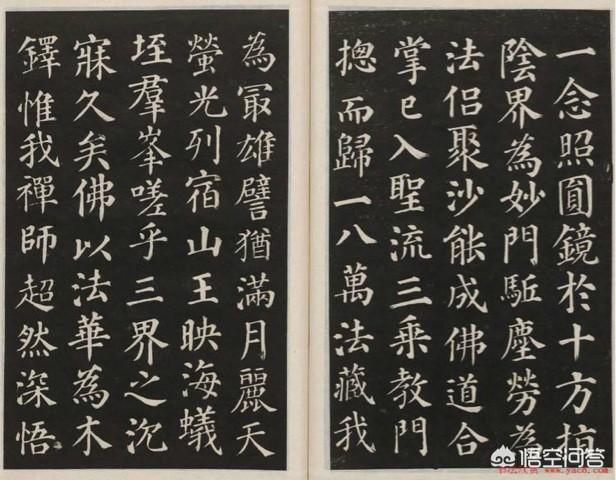 一念照圓鏡於十方指
陰界為妙門駈塵勞為
法侶聚沙能成佛道合
掌已入聖流三乘教門
揔而歸一八萬法藏我
為冣雄譬猶滿月麗天
螢光列宿山王映海蟻
垤羣峯嗟乎三界之沉
寐久矣佛以法華為木
鐸惟我禪師超然深悟
悟空问答
www.yac8.com